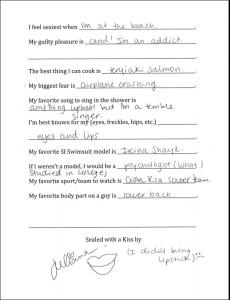 I feel sexiest when I'm at the beach.
My guilty pleasure is candy! I'm an addict.
The best thing I can cook is teriyaki salmon.
My biggest fear is airplane crashing
My favorite song to sing in the shower is
anything upbeat but I'm a terrible
singer.
I'm best known for my (eyes, freckles, hips, etc.)
eyes and lips
My favorite SI Swimsuit model is Irina Shayk.
If I weren't a model, I would be a psychologist (what I
studied in college)
My favorite sport/team to watch is Costa Rica soccer team
My favorite body part on a guy is lower back
Sealed with a Kiss by
(I didn't bring
lipstick)